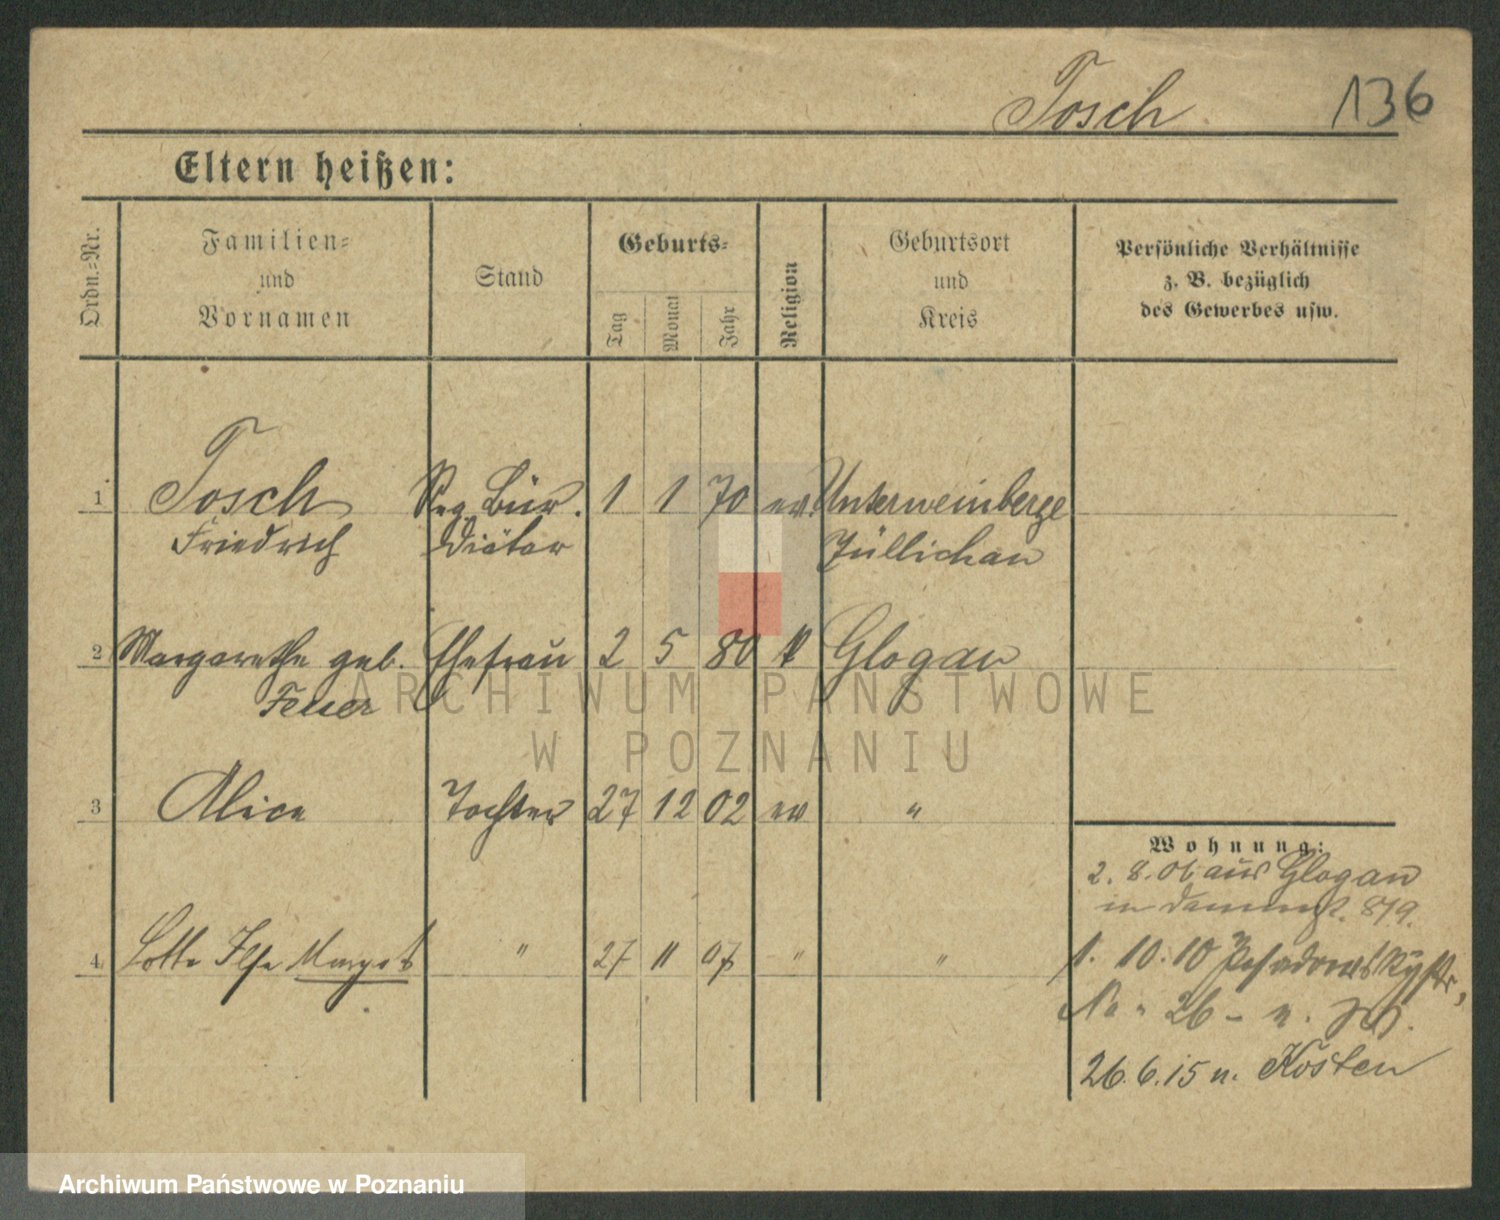 Tosch 136
Eltern heißen:
Ordn.-Nr.
Familien-
und
Vornamen
Stand
Geburts-
Tag
Monat
Jahr
Religion
Geburtsort
und
Kreis
Persönliche Verhältnisse
z. B. bezüglich
des Gewerbes usw.
1 Tosch Reg. Bür. 1 1 70 ev. Unterweinberge
Friedrich Diätar Züllichau
2 Margarethe geb. Ehefrau 2 5 80 Glogau
Feuer
3 Alice Tochter 27 12 02 ev "
4 Lotte Ilse Margot " 27 11 07 " "
Wohnung:
2. 8. 06 aus Glogau
in 8/9.
1. 10. 10
No. 26
26. 6. 15 n. Kosten
ARCHIWUM PAŃSTWOWE
W POZNANIU
Archiwum Państwowe w Poznaniu